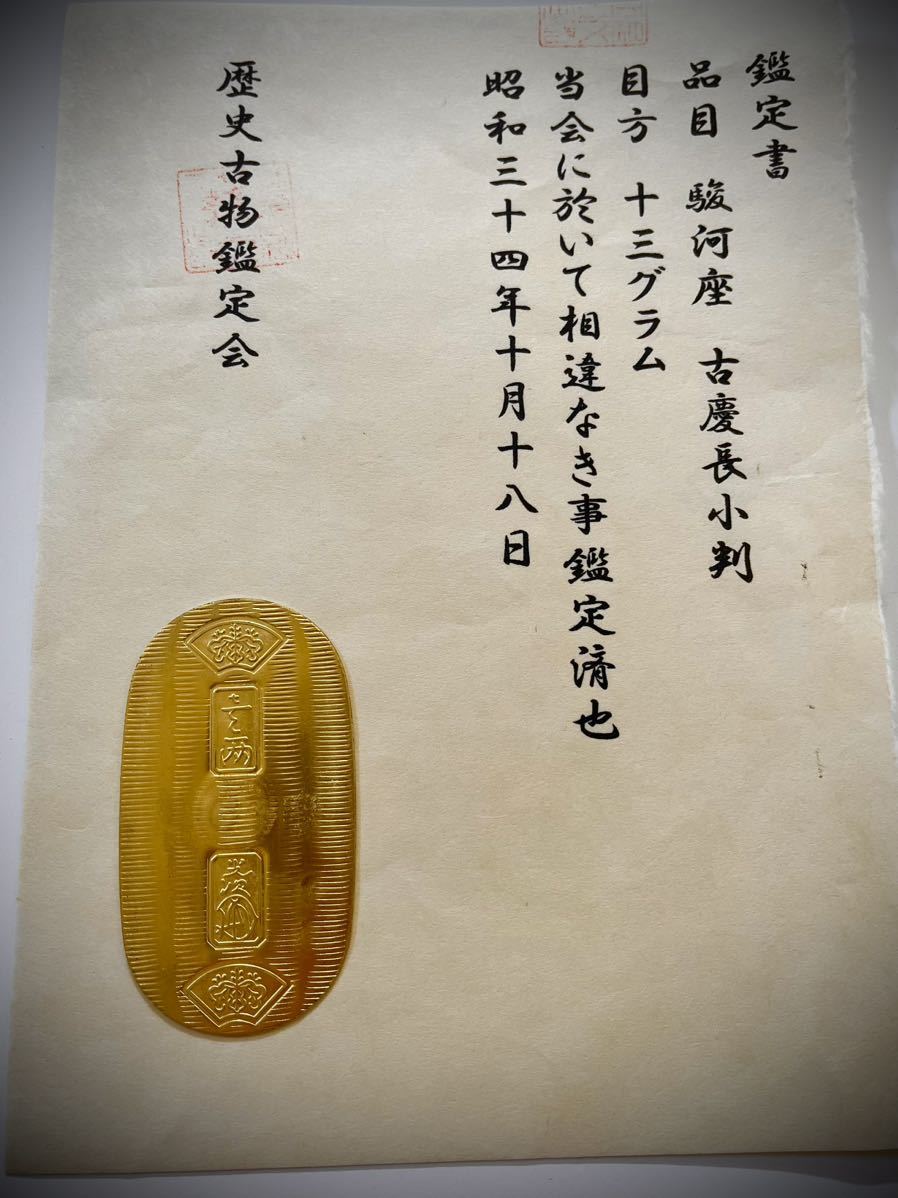 鑑定書
品目 駿河座 古慶長小判
目方 十三グラム
当会に於いて相違なき事鑑定済也
昭和三十四年十月十八日
歴史古物鑑定会
壱両
光次